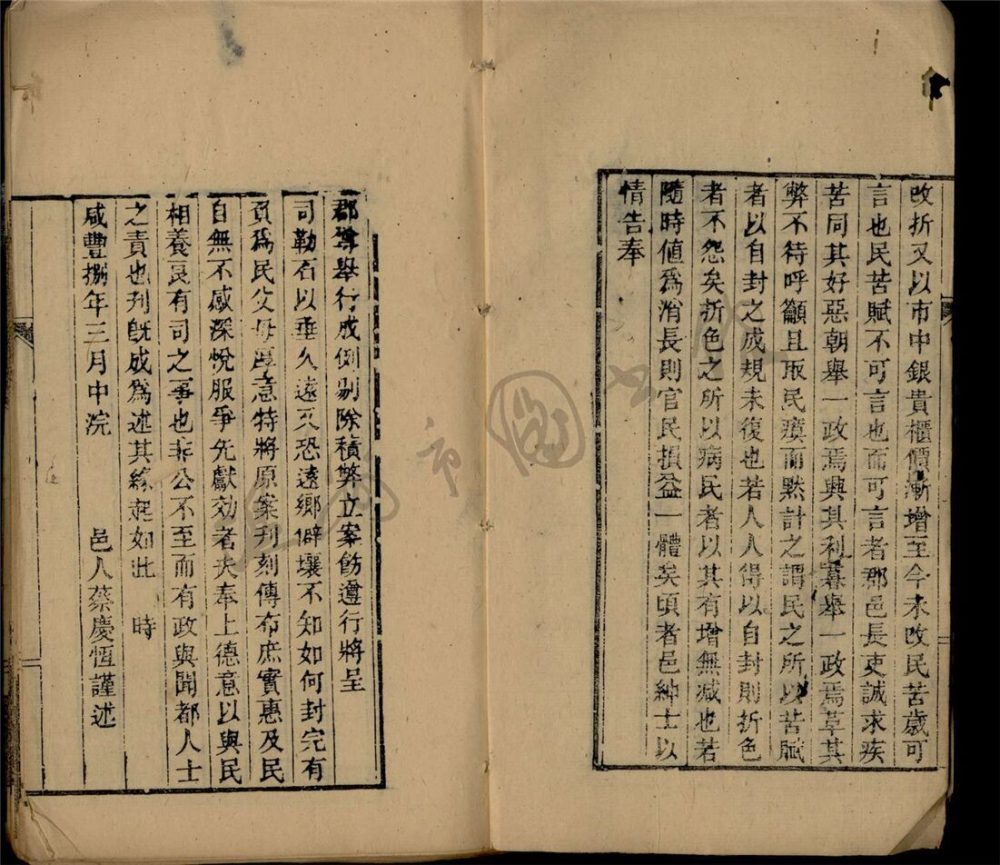 改折又以市中銀貴櫃價漸增至今未改民苦歲可
言也民苦賦不可言也而可言者郡邑長吏誠求疾
苦同其好惡朝舉一政焉興其利暮舉一政焉革其
弊不待呼籲且取民瘼而黙計之謂民之所以苦賦
者以自封之成規未復也若人人得以自封則折色
者不怨矣折色之所以病民者以其有增無减也若
隨時値爲消長則官民損益一體矣頃者邑紳士以
情告奉
郡尊舉行成例剔除積弊立案飭遵行將呈
司勒石以垂久遠又恐遠鄉僻壤不知如何封完有
負爲民父母厚意特將原案刊刻傳布庶實惠及民
自無不感深悅服爭先獻効者夫奉上德意以與民
相養良有司之事也非公不至而有政與聞都人士
之責也刊旣成爲述其緣起如此 時
咸豐捌年三月中浣 邑人蔡慶恆謹述